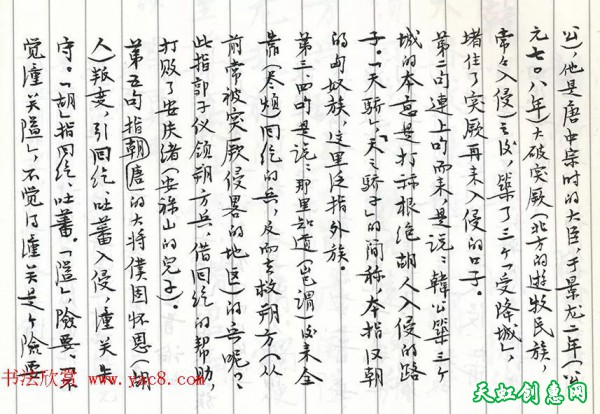 公），他是唐中宗时的大臣，于景龙二年（公
元七〇八年）大破突厥（北方的游牧民族，
常々入侵）之后，筑了三个「受降城」，
堵住了突厥再来入侵的口子。
第二句连上句而来，是说：韩公筑三个
城的本意是打祘根绝胡人入侵的路
子。「天骄」，「天之骄子」的简称，本指汉朝
的匈奴族，这里泛指外族。
第三、四句是说：那里知道（岂谓）后来全
靠（尽烦）回纥的兵，反而去救朔方（从
前常被突厥侵略的地区）的兵呢？
此指郭子仪领朔方兵，借回纥的帮助，
打败了安庆绪（安禄山的儿子）。
第五句指朝唐的大将仆固怀恩（胡
人）叛变，引回纥、吐蕃入侵，潼关失
守。「胡」指回纥、吐蕃。「隘」，险要。「不
觉潼关隘」，不觉得潼关是个险要
书法欣赏 www.yac8.com
天虹创意网